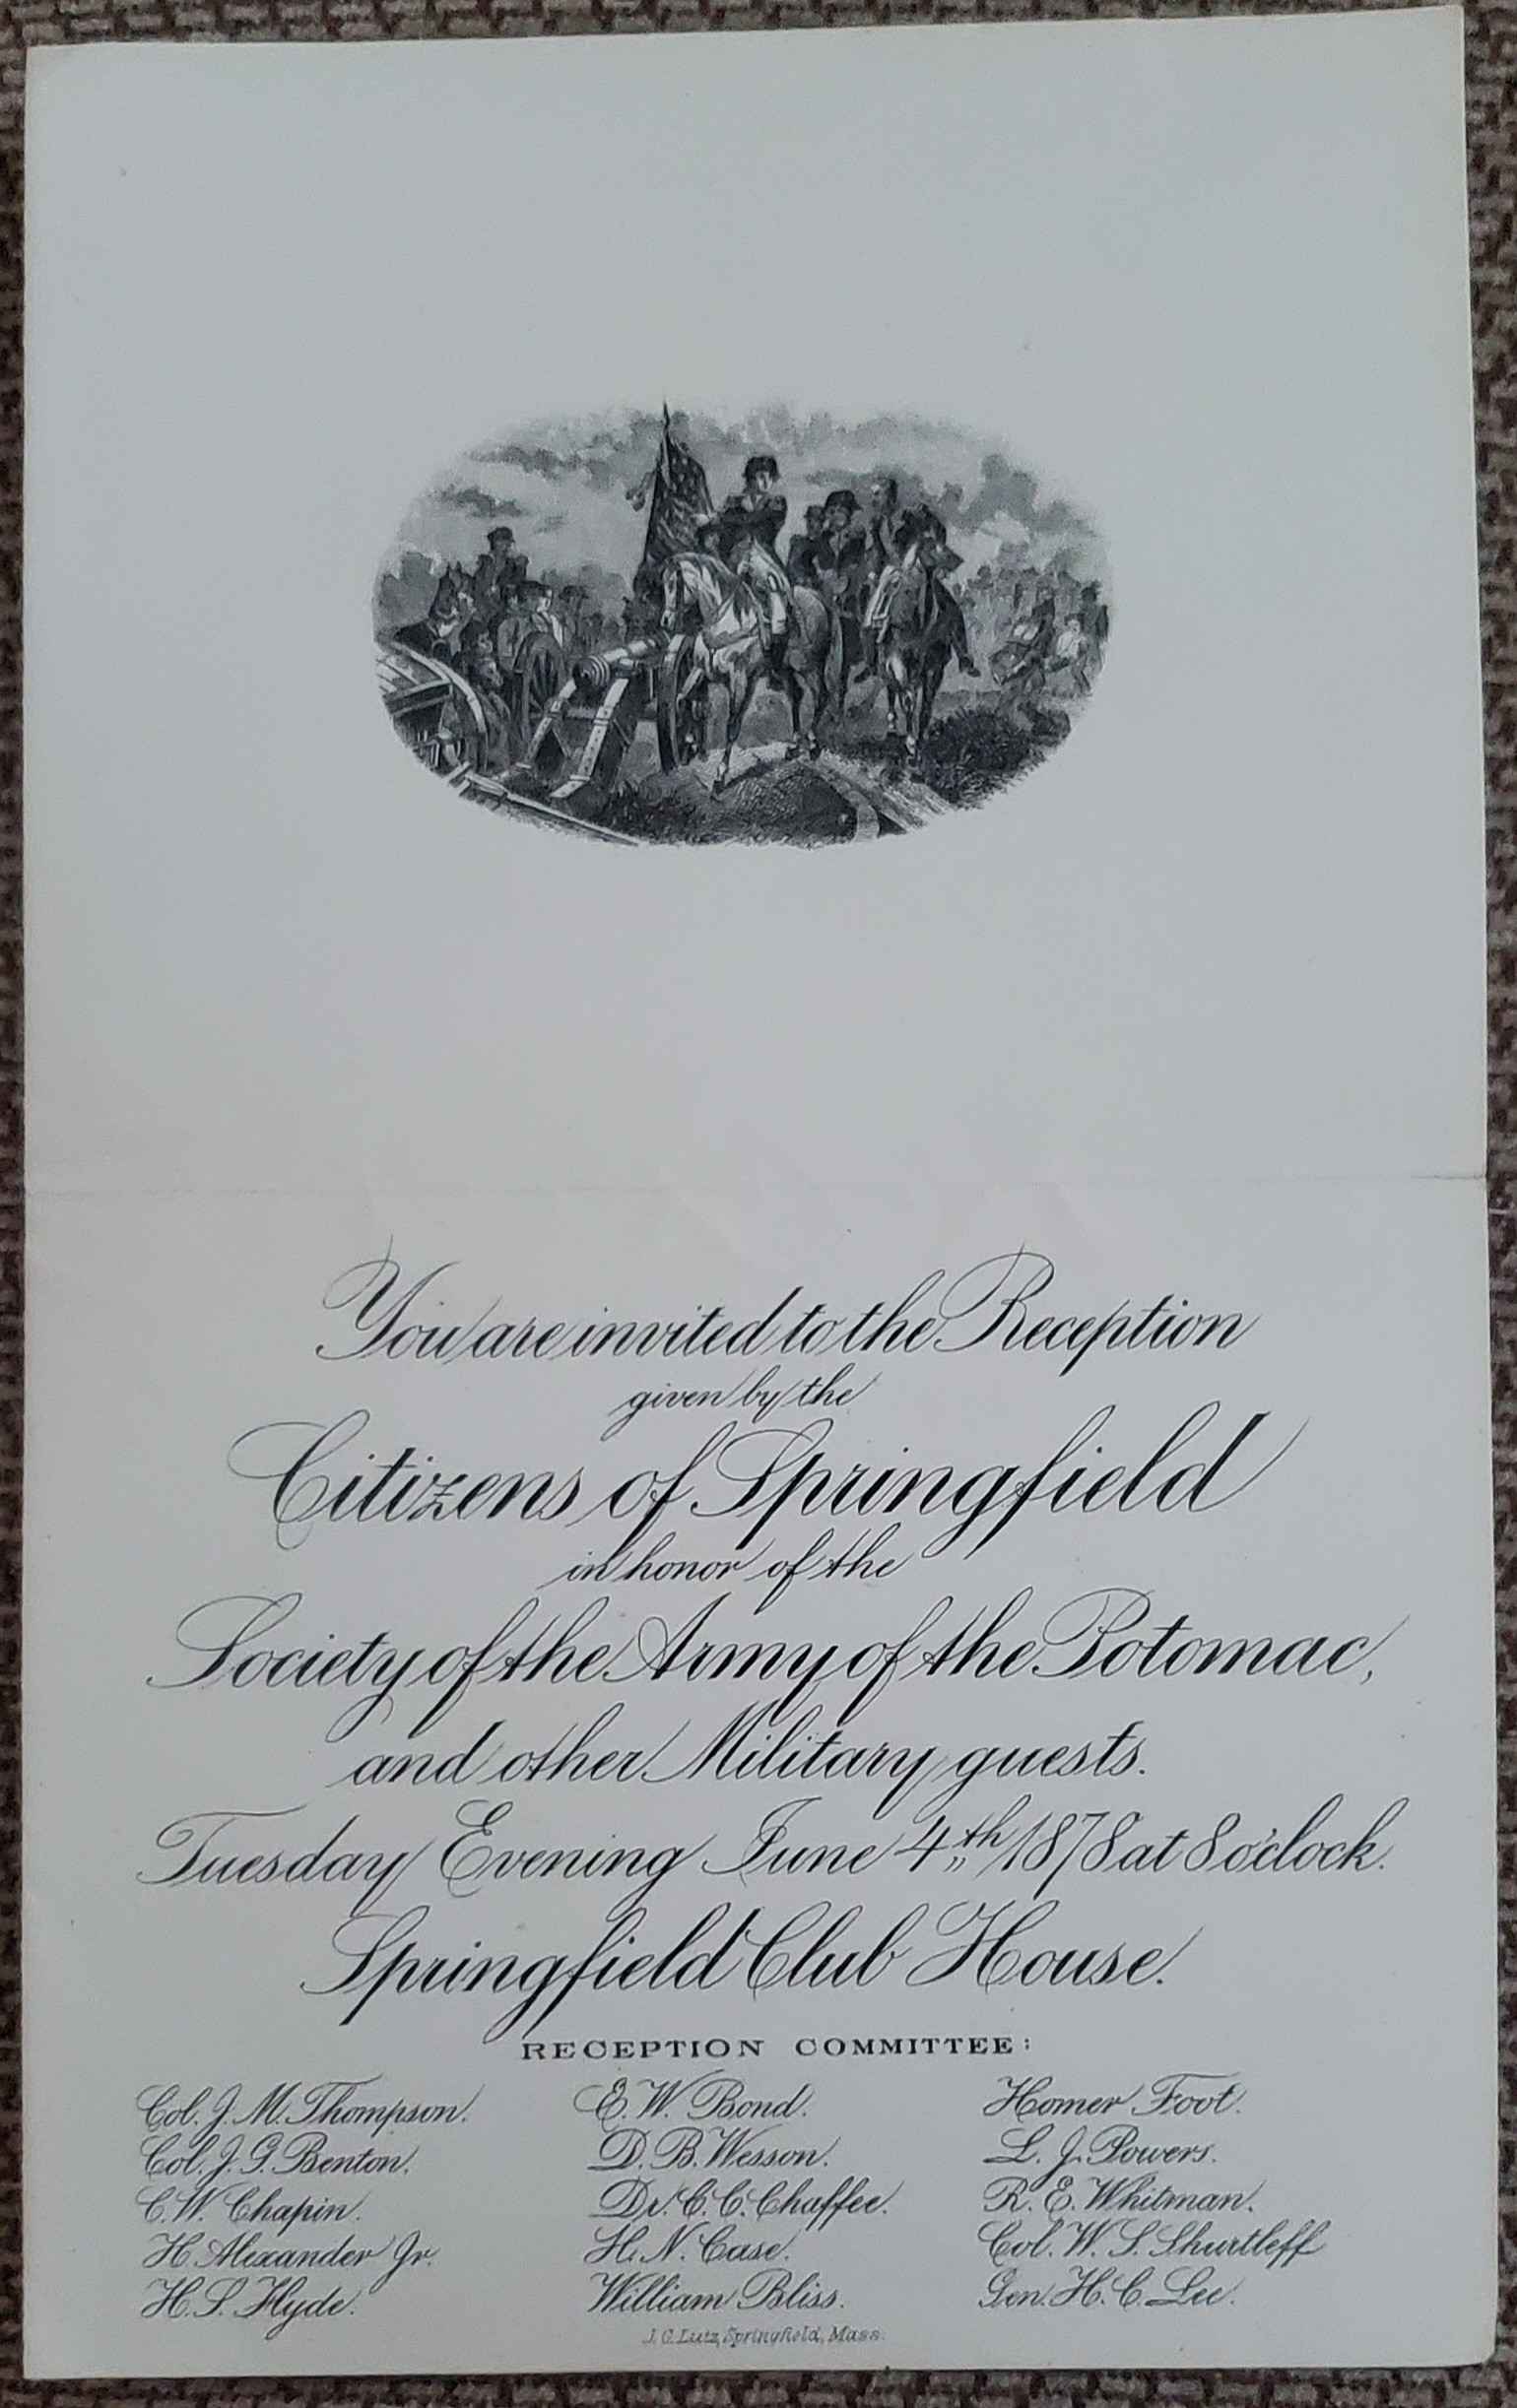 You are invited to the Reception
given by the
Citizens of Springfield
in honor of the
Society of the Army of the Potomac,
and other Military guests.
Tuesday Evening June 4th 1878 at 8 o'clock.
Springfield Club House.
RECEPTION COMMITTEE:
Col. J. M. Thompson.
Col. J. G. Benton.
C. W. Chapin.
H. Alexander Jr.
H. S. Hyde.
E. W. Bond.
D. B. Wesson.
Dr. C. C. Chaffee.
H. N. Case.
William Bliss.
Homer Foot.
L. J. Powers.
R. E. Whitman.
Col. W. S. Shurtleff
Gen. H. C. Lee.
J. G. Lutz, Springfield, Mass.